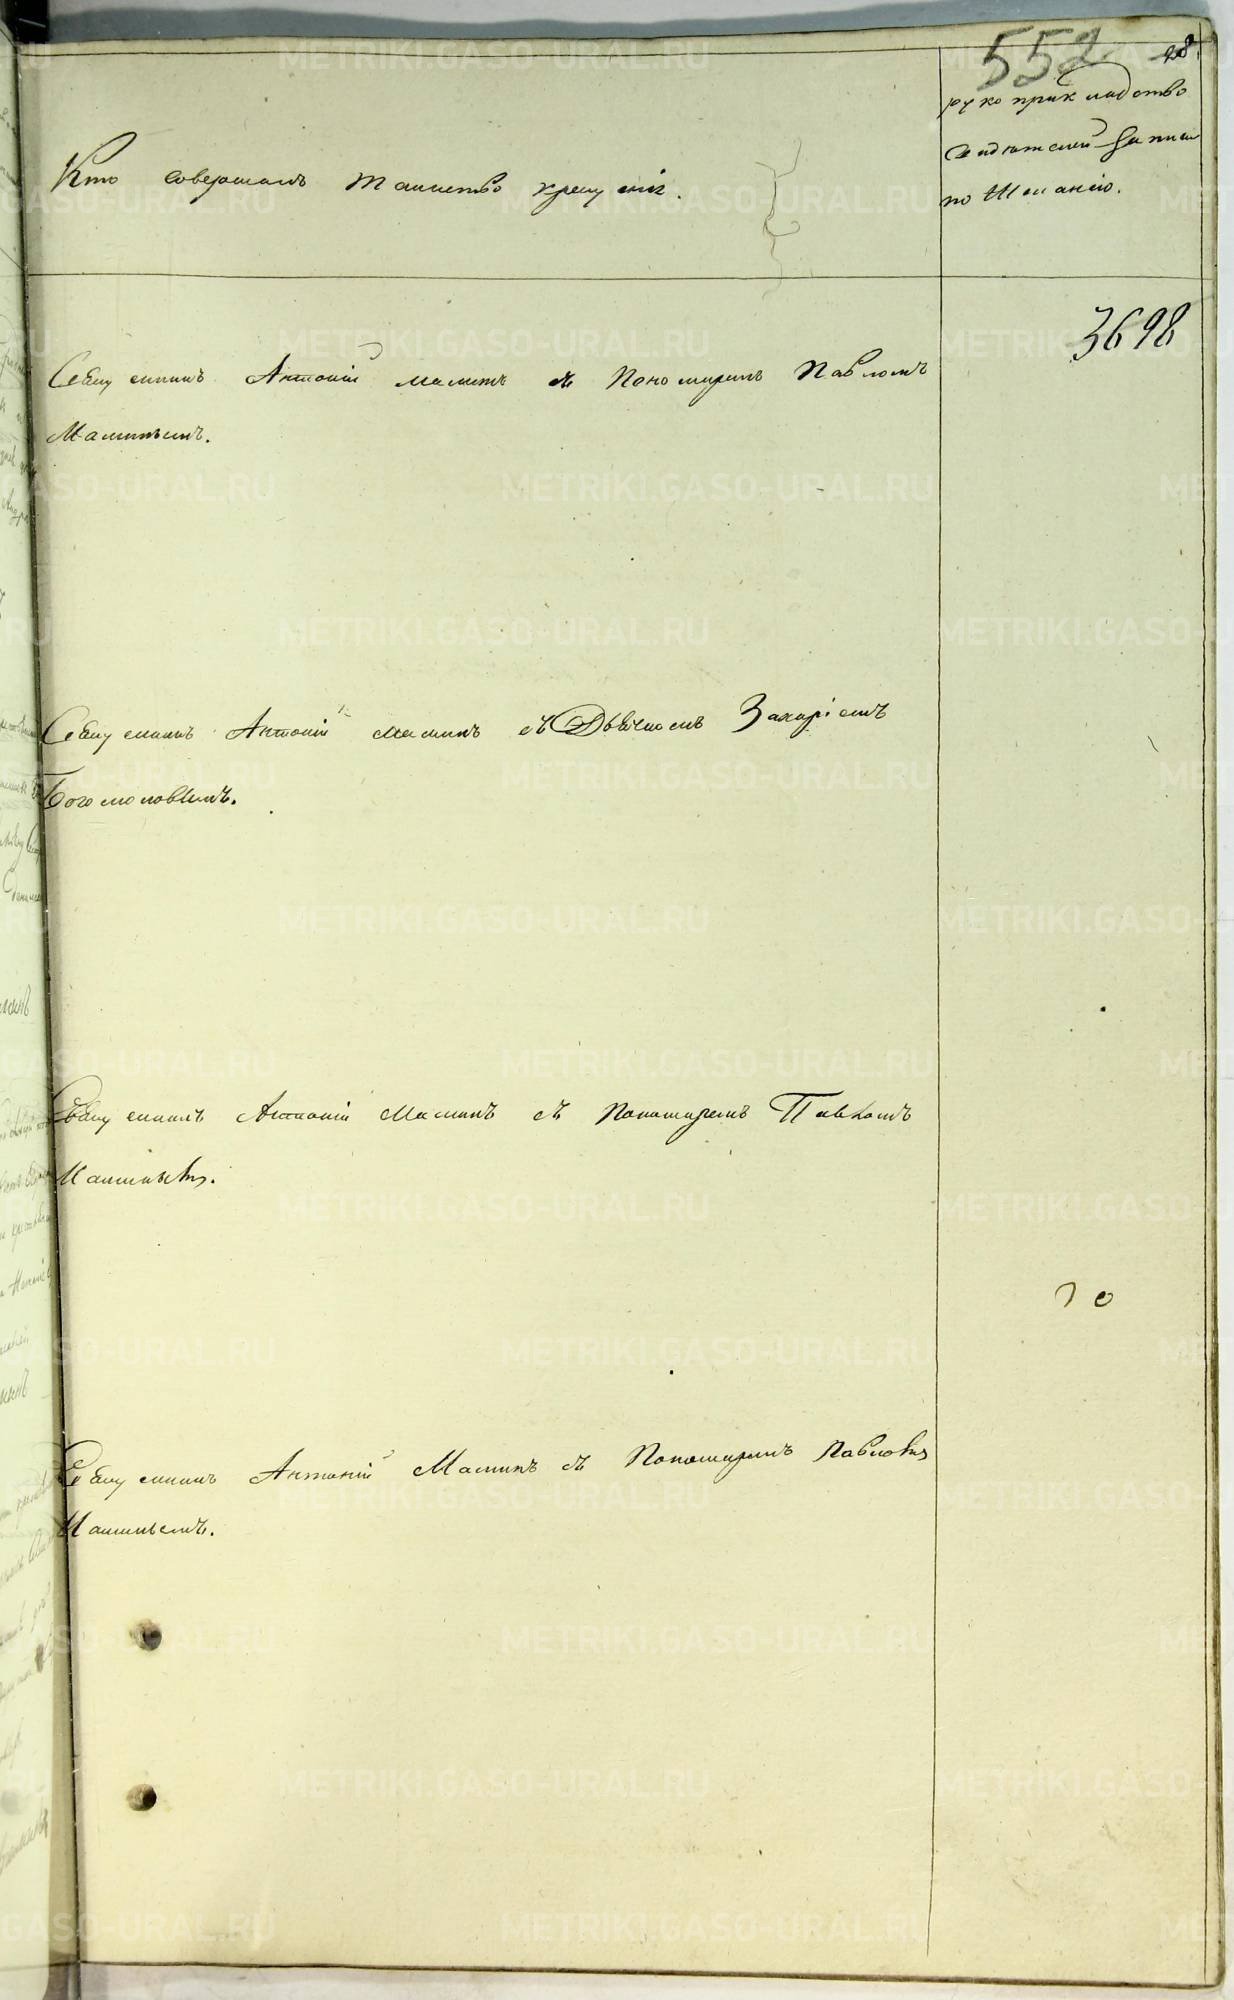 552
28.
Кто совершалъ таинство крещенія.
рукоприкладство
свидетелей записи
по желанію.
3698
Священникъ Антоній Маминъ съ Пономаремъ Павломъ
Маминымъ.
Священникъ Антоній Маминъ съ Дьячкомъ Захаріемъ
Богомоловымъ.
Священникъ Антоній Маминъ съ Пономаремъ Павломъ
Маминымъ.
Священникъ Антоній Маминъ съ Пономаремъ Павломъ
Маминымъ.
METRIKI.GASO-URAL.RU